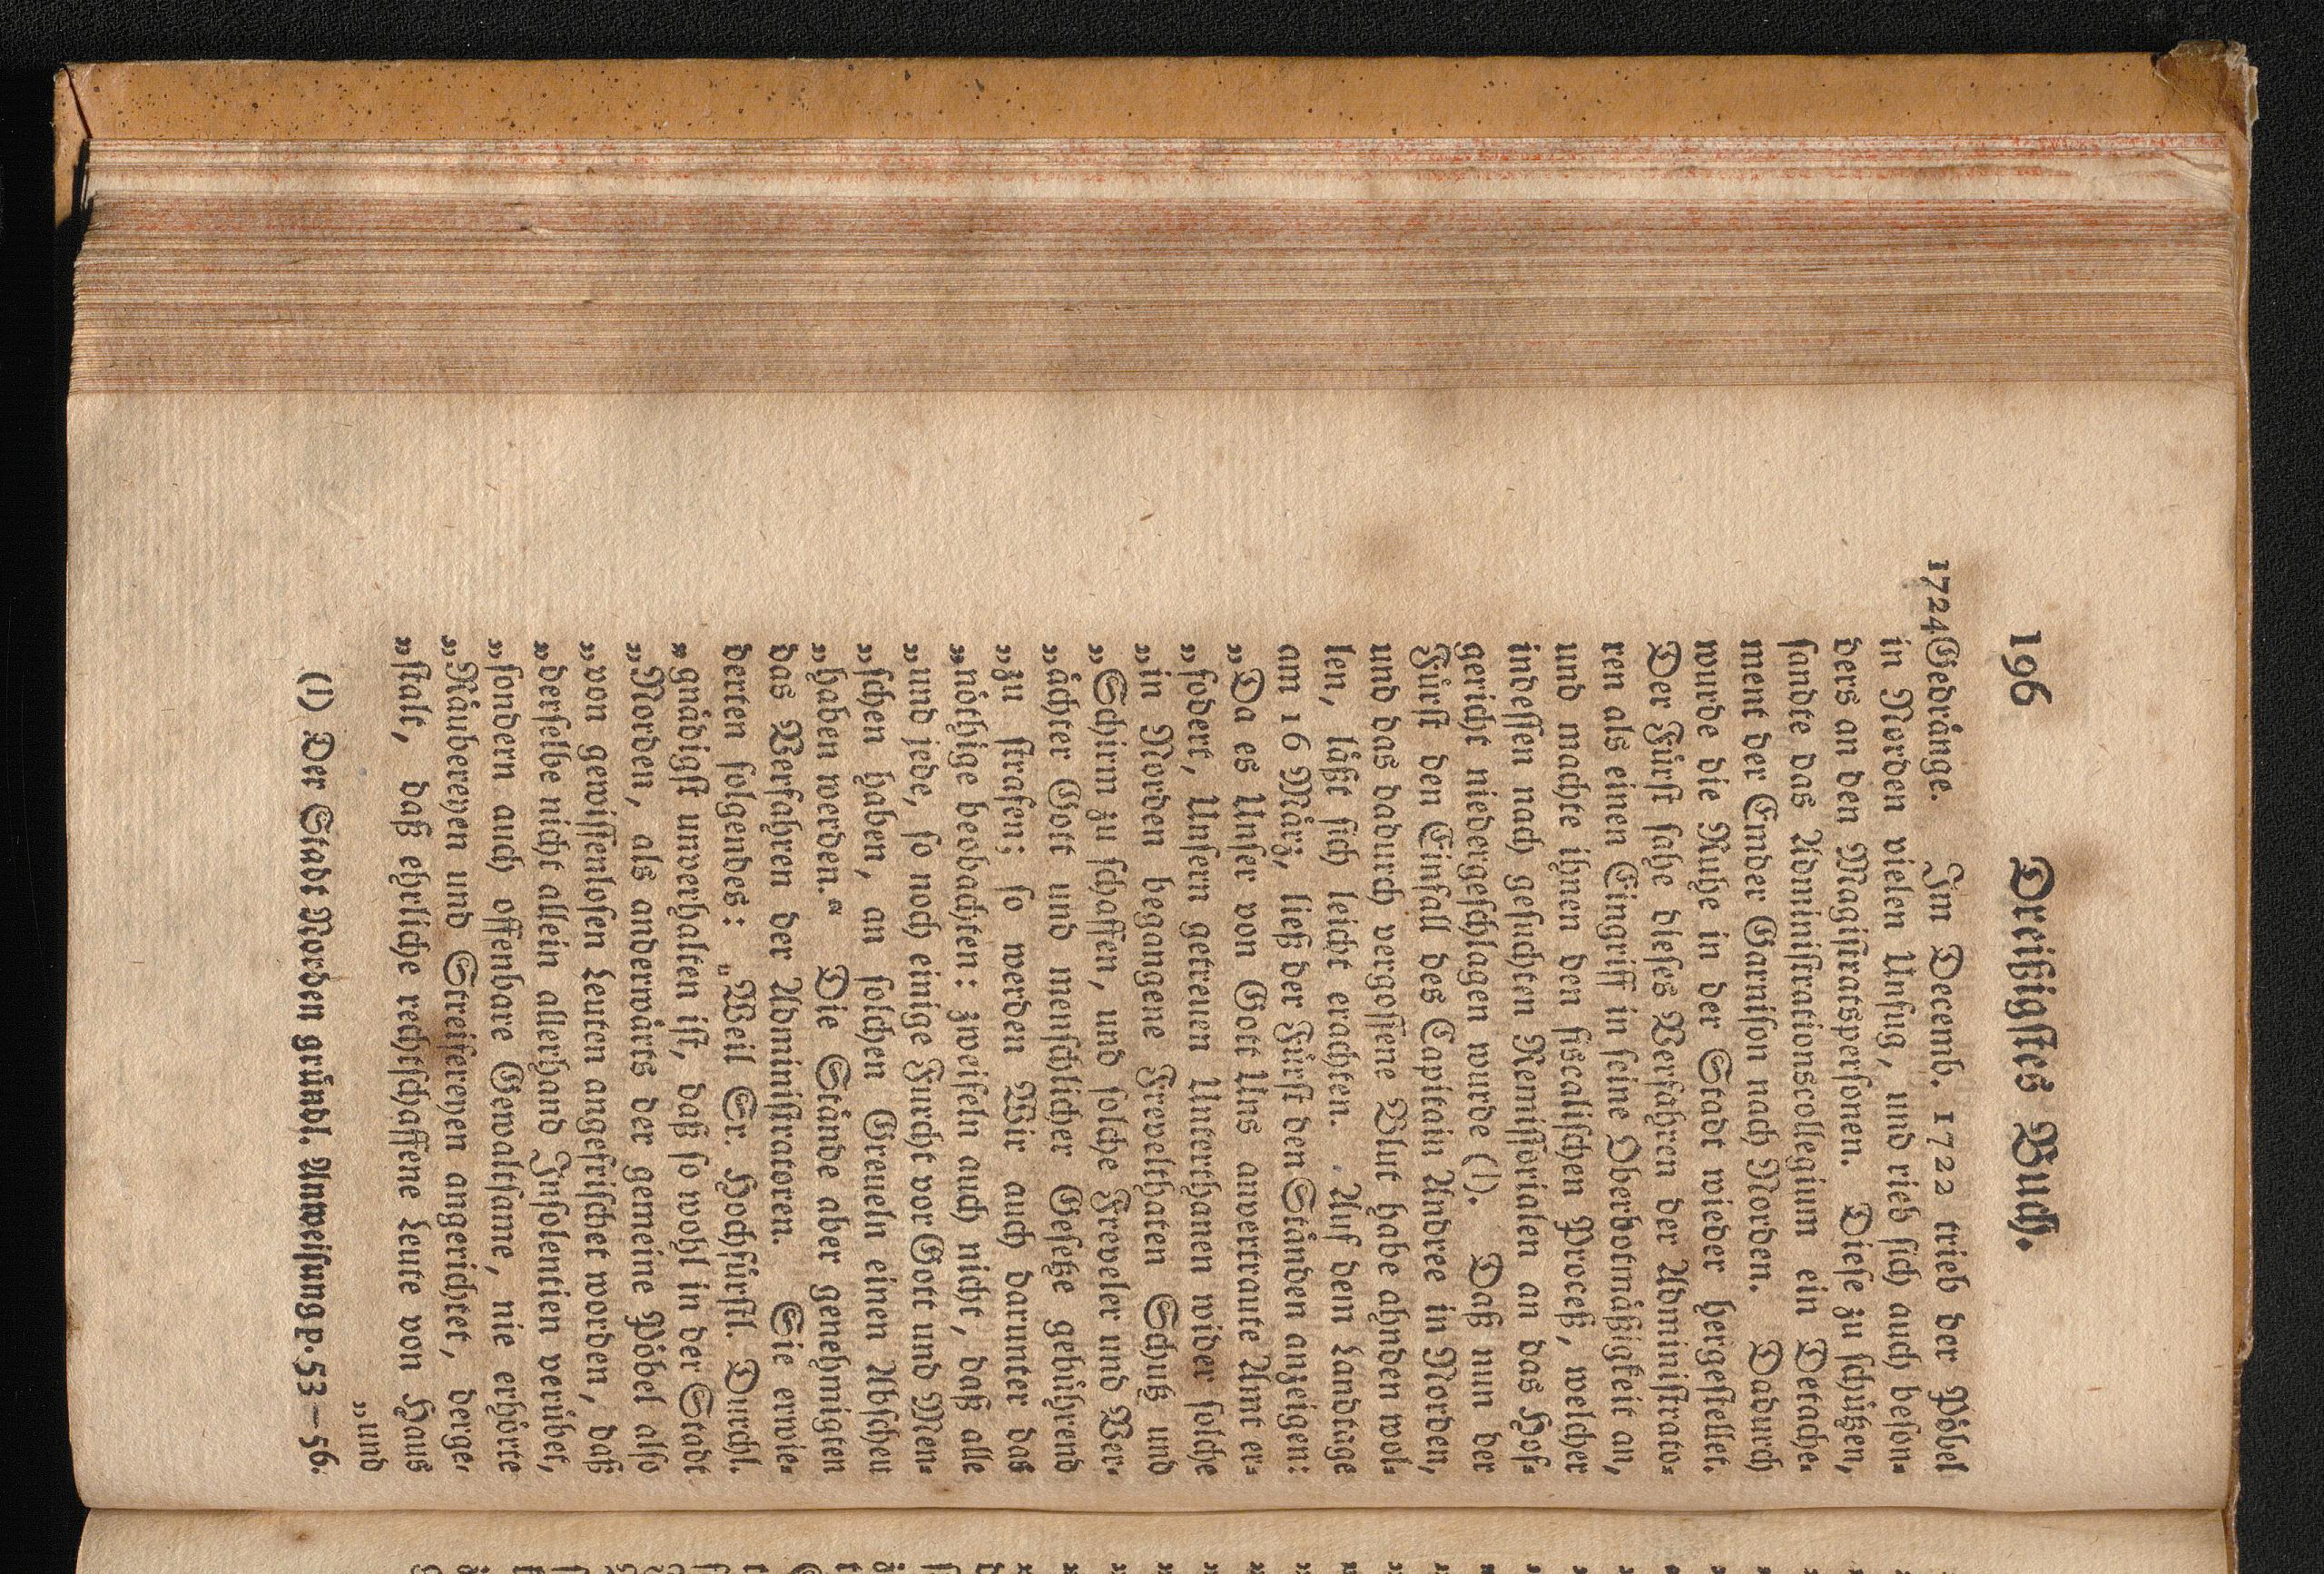 196 Dreißigstes Buch.
1724 Gedränge. Im Decemb. 1722 trieb der Pöbel
in Norden vielen Unfug, und rieb sich auch beson-
ders an den Magistratspersonen. Diese zu schüßen,
sandte das Administrationscollegium ein Detache-
ment der Emder Garnison nach Norden. Dadurch
wurde die Ruhe in der Stadt wieder hergestellet.
Der Fürst sahe dieses Verfahren der Administrato-
ren als einen Eingriff in seine Oberbotmäßigkeit an,
und machte ihnen den fiscalischen Proceß, welcher
indessen nach gesuchten Remissorialen an das Hof-
gericht niedergeschlagen wurde (l). Daß nun der
Fürst den Einfall des Capitain Andree in Norden,
und das dadurch vergossene Blut habe ahnden wol-
len, läßt sich leicht erachten. Auf dem Landtage
am 16 März, ließ der Fürst den Ständen anzeigen:
„Da es Unser von Gott Uns anvertraute Amt er-
„fodert, Unsern getreuen Unterthanen wider solche
„in Norden begangene Frevelthaten Schutz und
„Schirm zu schaffen, und solche Freveler und Ver-
„ächter Gott und menschlicher Gesetze gebührend
„zu strafen; so werden Wir auch darunter das
„nöthige beobachten: zweifeln auch nicht, daß alle
„und jede, so noch einige Furcht vor Gott und Men-
„schen haben, an solchen Greueln einen Abscheu
„haben werden.“ Die Stände aber genehmigten
das Verfahren der Administratoren. Sie erwie-
derten folgendes: „Weil Er. Hochfürstl. Durchl.
„gnädigst unverhalten ist, daß so wohl in der Stadt
„Norden, als anderwärts der gemeine Pöbel also
„von gewissenlosen Leuten angefrischet worden, daß
„derselbe nicht allein allerhand Insolentien verübet,
„sondern auch offenbare Gewaltsame, nie erhörte
„Räubereyen und Streifereyen angerichtet, derge-
„stalt, daß ehrliche rechtschaffene Leute von Haus
„und
(l) Der Stadt Norden gründl. Anweisung p. 53–56.